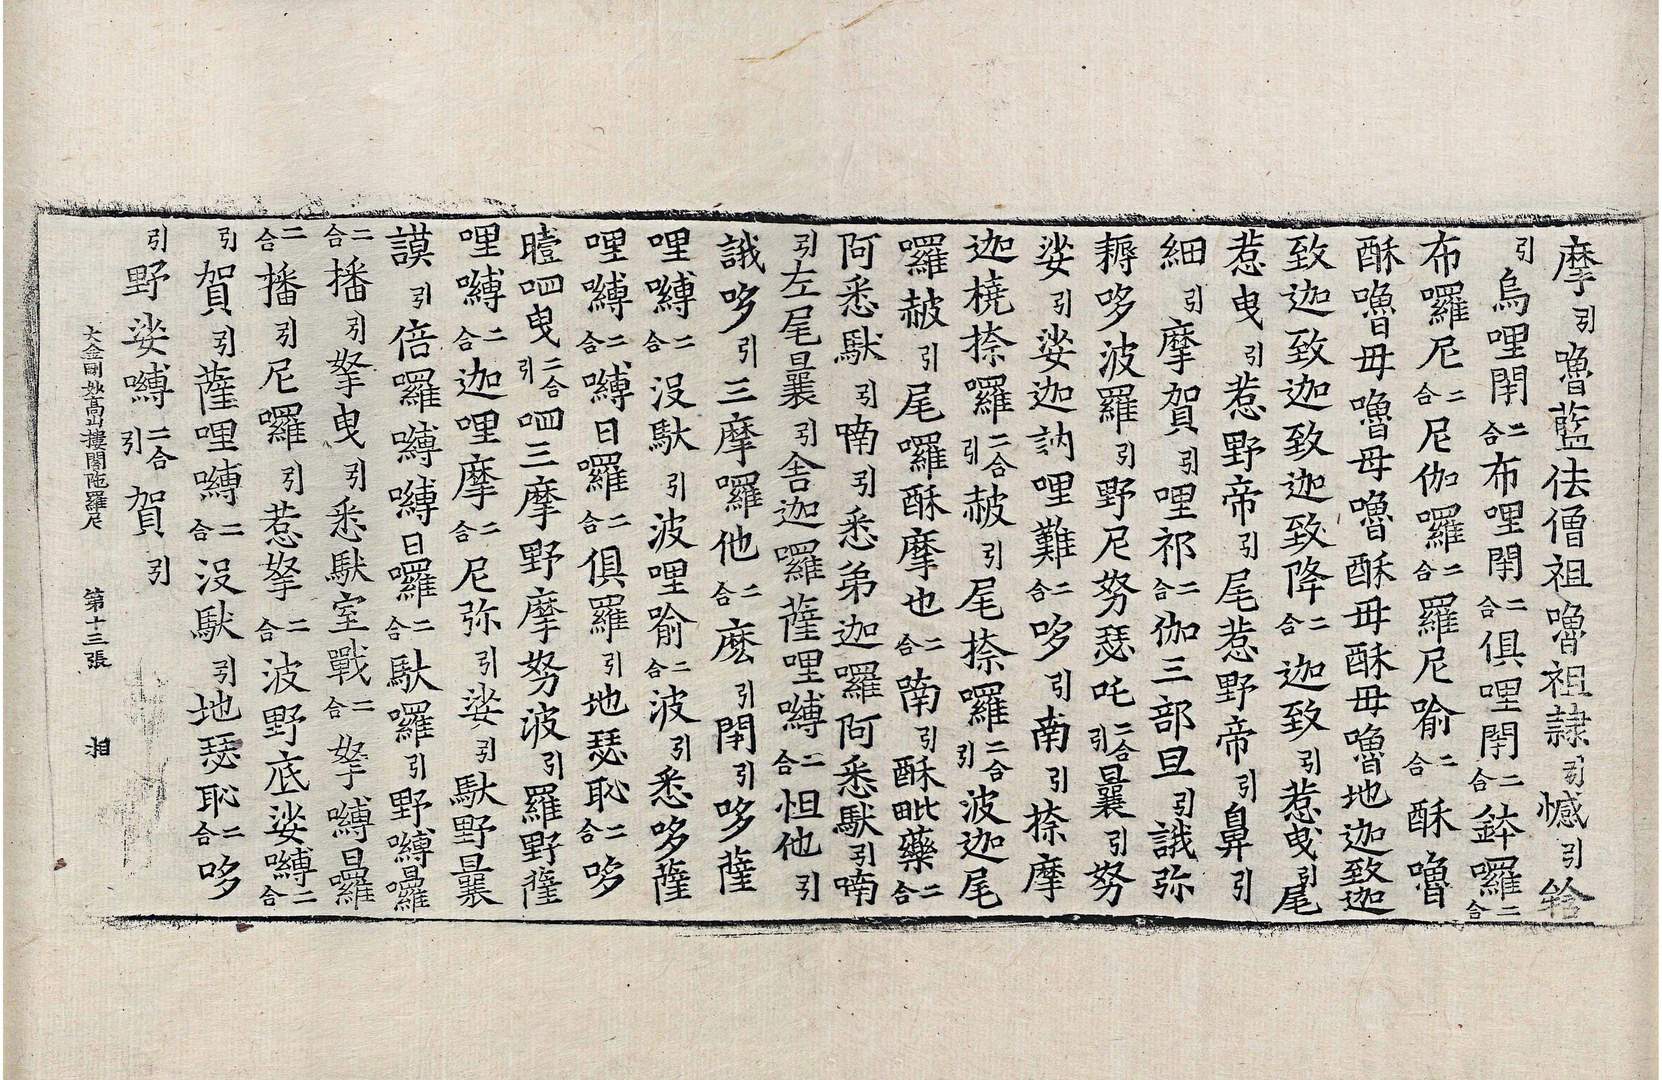 摩引嚕藍佉僧祖嚕祖隷引憾引䶎
引烏哩閇二合布哩閇二合俱哩閇二合鉢囉二合
布囉尼二合尼伽囉二合羅尼喻二合酥嚕
酥嚕毋嚕毋嚕酥毋酥毋嚕地迦致迦
致迦致迦致迦致降二合迦致引惹曳引尾
惹曳引惹野帝引尾惹野帝引鼻引
細引摩賀引哩祁二合伽三部旦引誐弥
耨哆波羅引野尼努瑟吒二合引曩引努
娑引娑迦訥哩難二合哆引南引捺摩
迦橈捺囉二合引赦引尾捺囉二合引波迦尾
囉赦引尾囉酥摩也二合喃引酥毗藥二合
阿悉馱引喃引悉弟迦囉阿悉馱引喃
引左尾曩引舍迦囉薩哩嚩二合怛他引
誐哆引三摩囉他二合麽引閇引哆薩
哩嚩二合沒馱引波哩喻二合波引悉哆薩
哩嚩二合嚩日囉二合俱羅引地瑟恥二合哆
曀呬曳二合引呬三摩野摩努波引羅野薩
哩嚩二合迦哩摩二合尼弥引娑引馱野曩
謨引倍囉嚩嚩日囉二合馱羅引野嚩日囉
二合播引拏曳引悉馱室戰二合拏嚩日囉
二合播引尼囉引惹拏二合波野底娑嚩二合
引賀引薩哩嚩二合沒馱引地瑟恥二合哆
引野娑嚩二合引賀引
大金剛妙高山樓閣陁羅尼 第十三張 湘